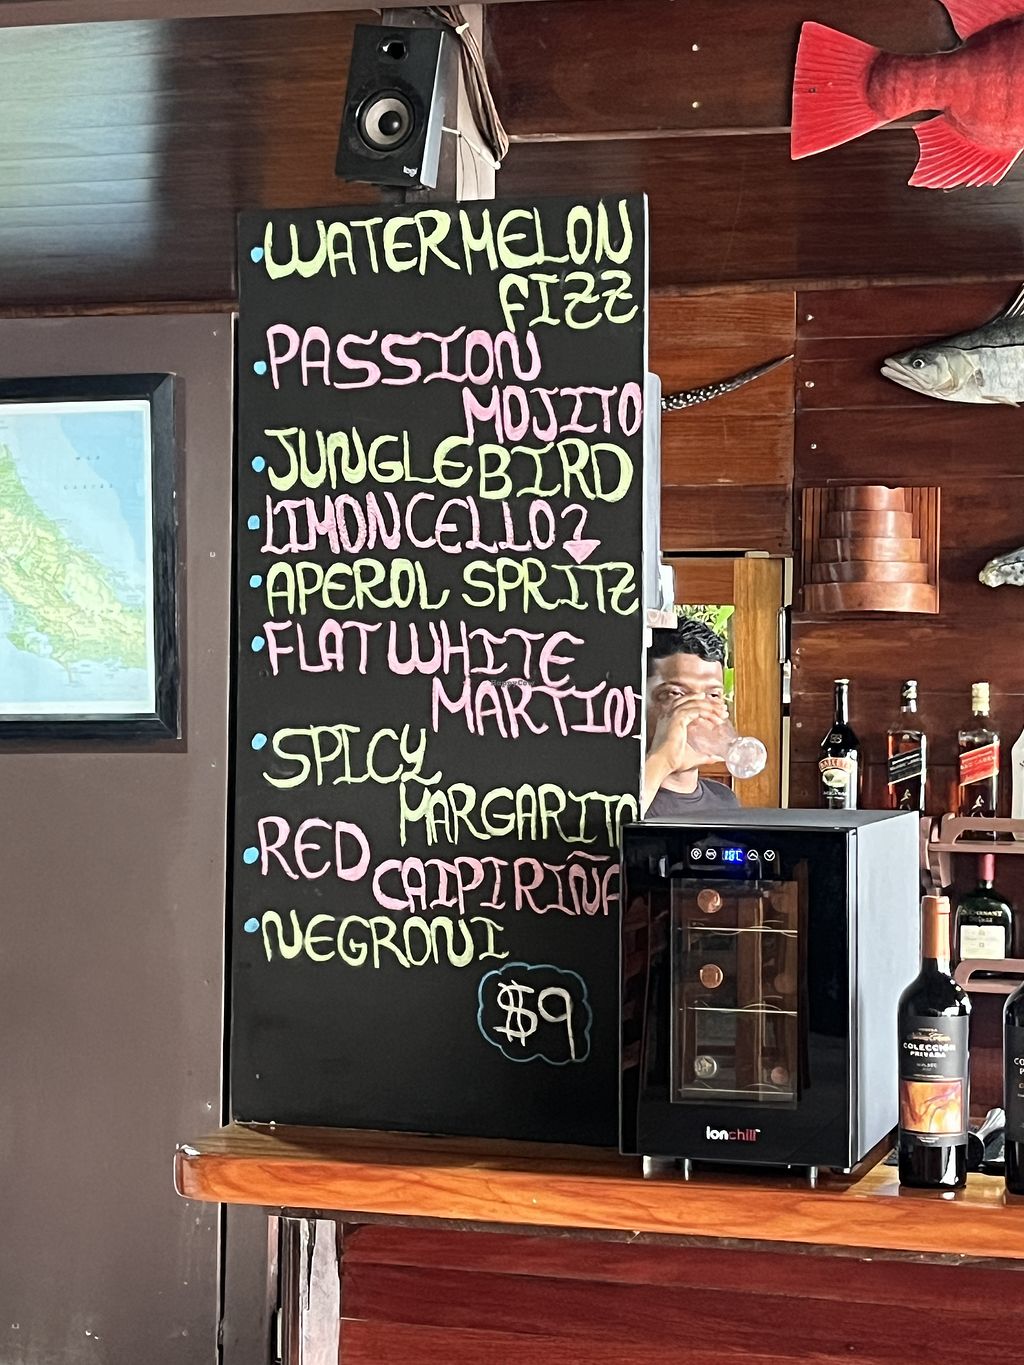 WATERMELON
FIZZ
PASSION
MOJITO
JUNGLE BIRD
LIMONCELLO
APEROL SPRITZ
FLAT WHITE
MARTINI
SPICY
MARGARITA
RED
CAIPIRIÑA
NEGRONI
$9
logi
HappyCow
18°C
ionchill™
COLECCIÓN
PRIVADA
MALBEC
BAILEYS